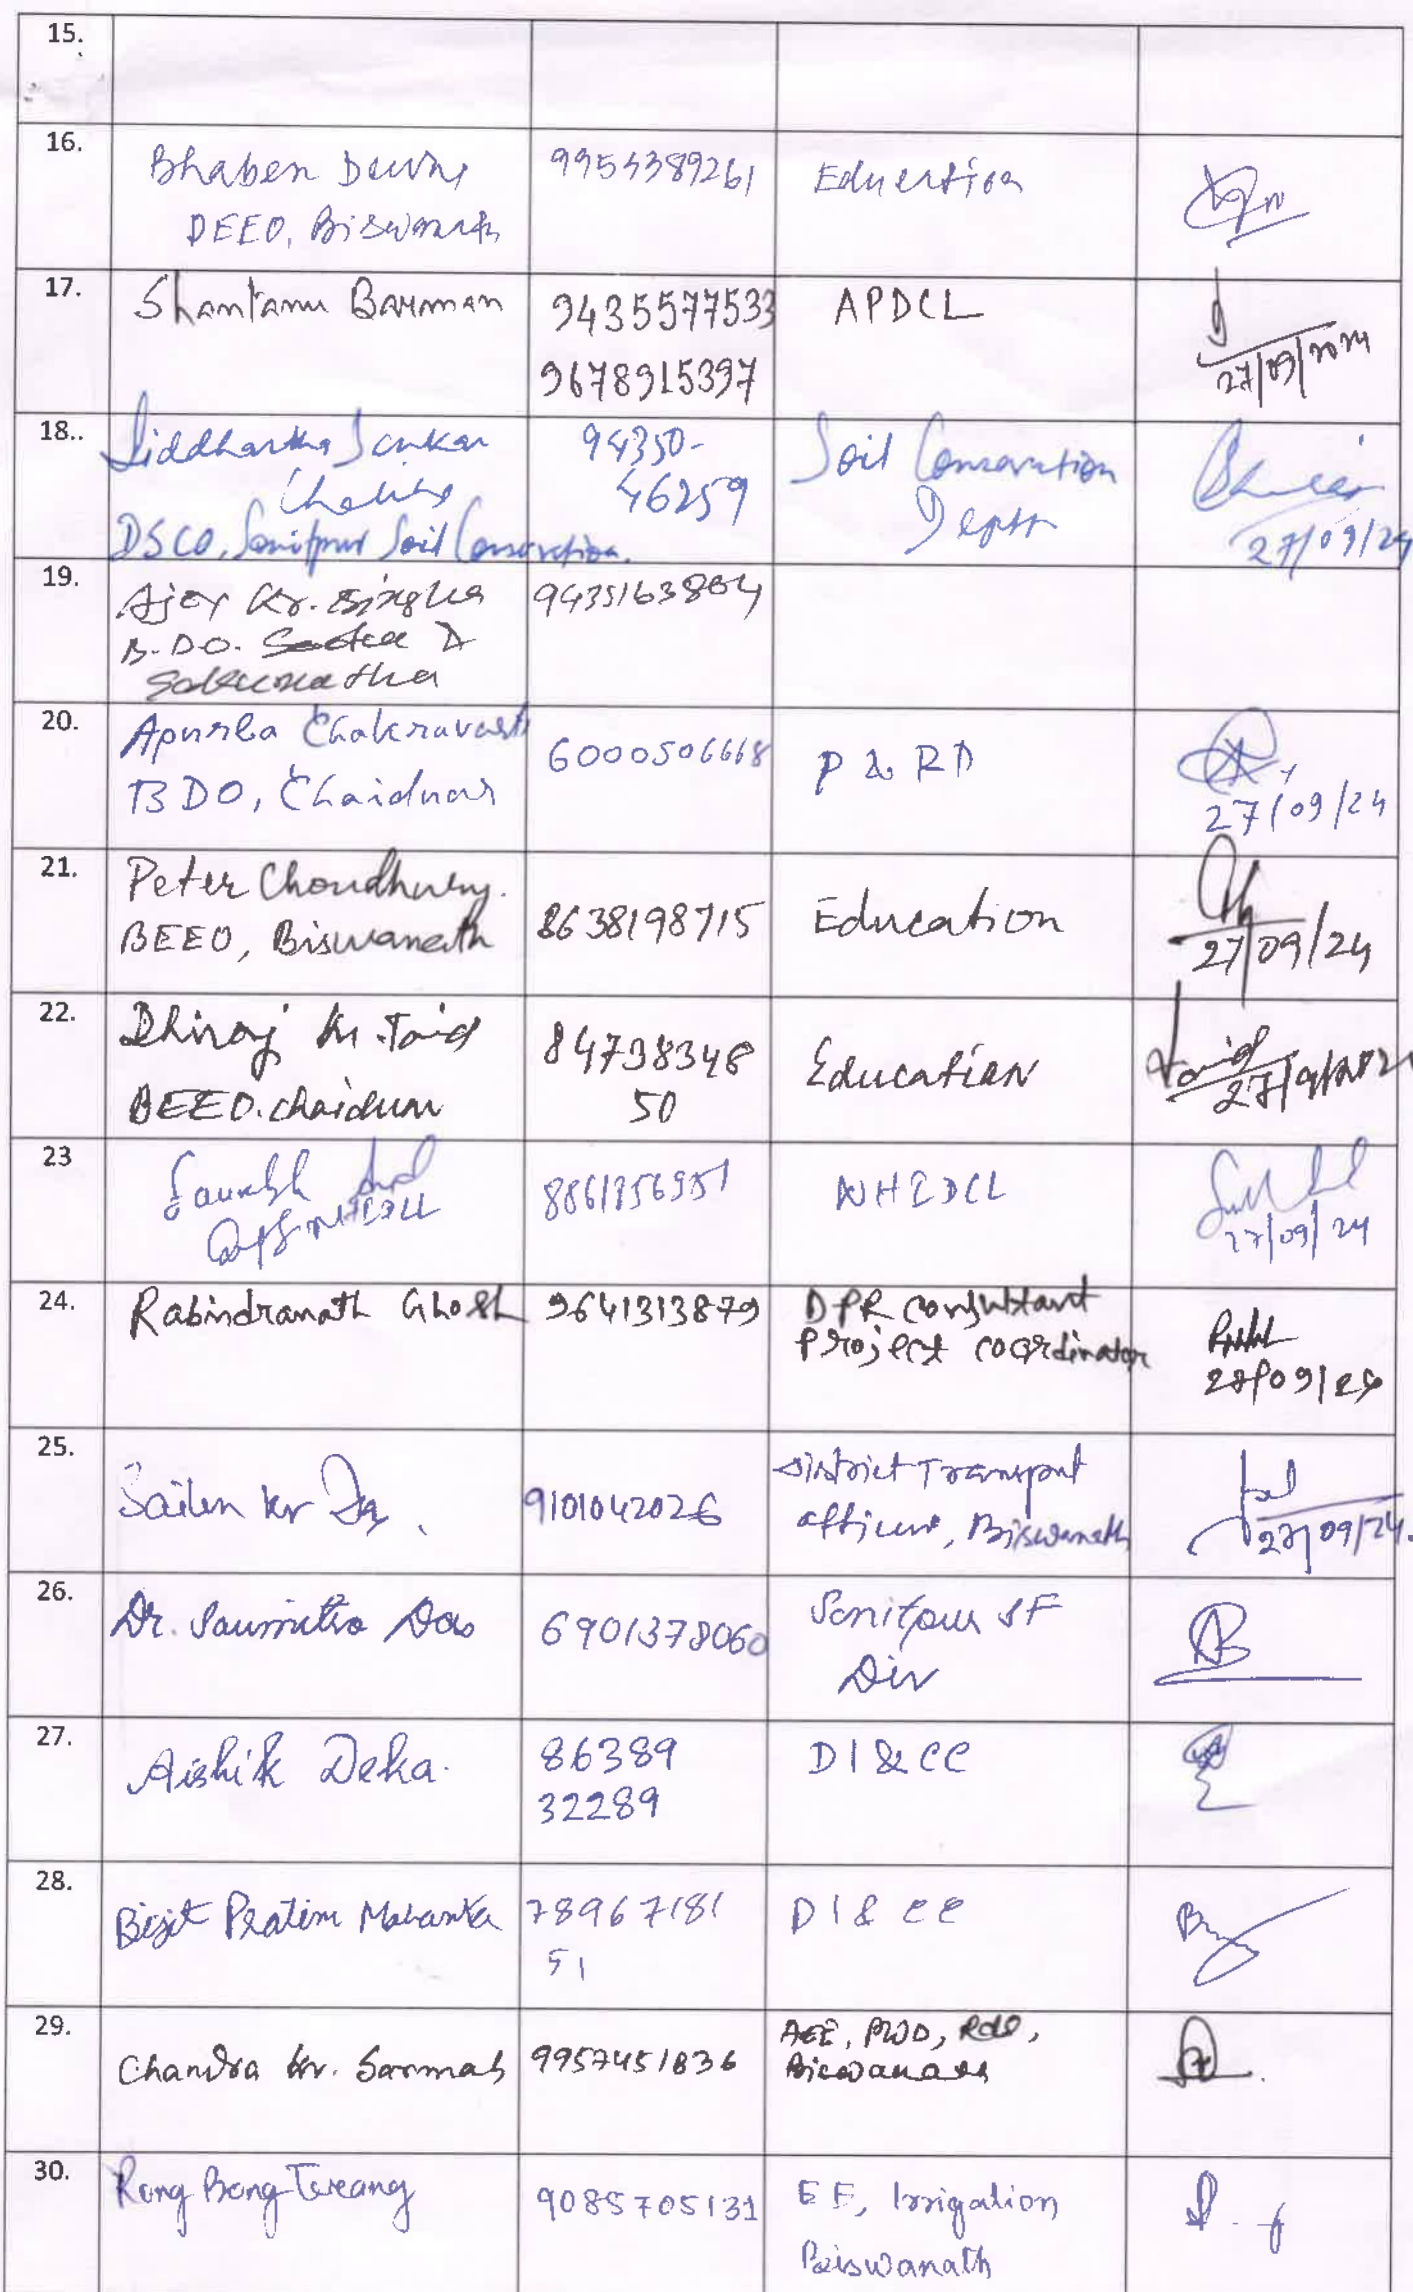 15.
16.
Bhaben
DEEO, Biswanath
9954389261
Education
17.
Shantanu Barman
9435577533
9678915397
APDCL
27/09/2024
18..
Siddhartha Sankar
DSCO, Sonitpur Soil Conservation.
94350-
46259
Soil Conservation
Deptt
27/09/24
19.
Ajoy Kr. Singha
B.DO.
Sakomatha
9435163804
20.
Apurba Chakravarti
BDO, Chaiduar
6000506668
P & RD
27/09/24
21.
Peter Choudhury.
BEEO, Biswanath
8638198715
Education
27/09/24
22.
Dhiraj Kr. Taid
BEEO. Chaiduar
84738348
50
Education
Taid
27/9/2024
23
Saurabh
NHIDCL
8861956951
NHIDCL
27/09/24
24.
Rabindranath Ghosh
9641313879
DPR Consultant
Project coordinator
27/09/24
25.
Sailen Kr Das.
9101042026
District Transport
officer, Biswanath
27/09/24.
26.
Dr. Saumitra Das
6901378060
Sonitpur SF
Div
27.
Aishik Deka.
86389
32289
DI & CC
28.
Bijit Pratim Mahanta
78967181
51
DI & CC
29.
Chandra Kr. Sarmah
9957451836
AEE, PWD, Rds,
Biswanath
30.
Rong Bong Terang
9085705131
EE, Irrigation
Biswanath